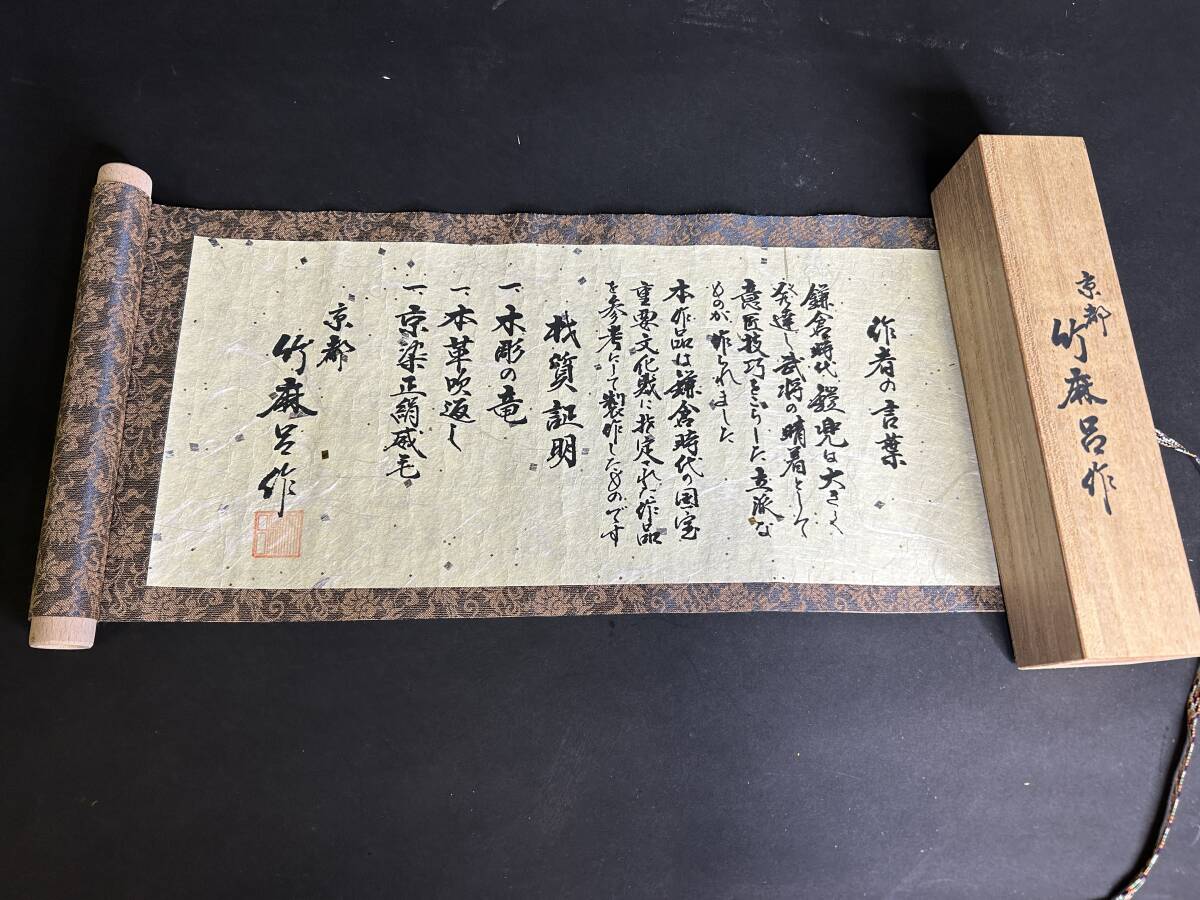 作者の言葉
鎌倉時代鎧兜は大きく
発達し武将の晴着として
意匠技巧をこらした立派な
ものが作られました
本作品は鎌倉時代の国宝
重要文化財に指定された作品
を参考にして製作したものです
材質証明
一 木彫の竜
一 本革吹返し
一 京染正絹威毛
京都
竹麻呂作
京都
竹麻呂作